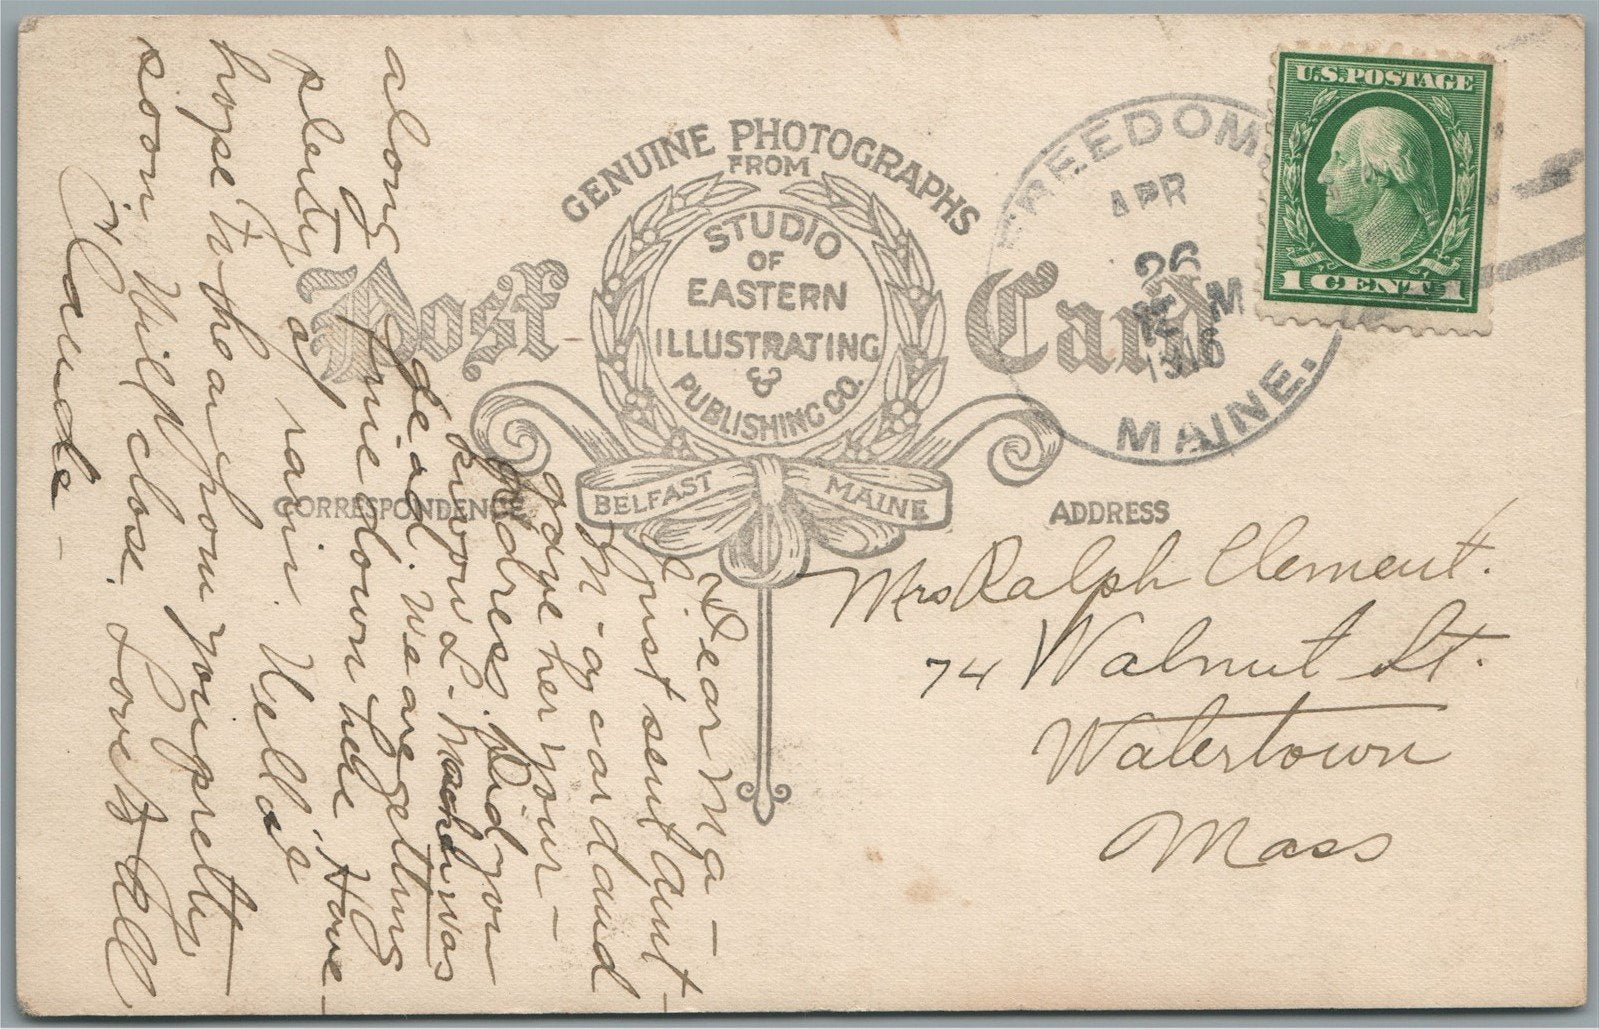 GENUINE PHOTOGRAPHS
FROM
STUDIO
OF
EASTERN
ILLUSTRATING
&
PUBLISHING CO.
BELFAST MAINE
Post Card
CORRESPONDENCE
ADDRESS
FREEDOM,
APR
26
M
1916
MAINE.
U.S. POSTAGE
1 CENT 1
Mrs Ralph Clement.
74 Walnut St.
Watertown
Mass
Dear Ma —
I just sent Aunt
M - a card and
gave her your —
address. Did you
know L - was
dead. We are getting
along fine down here Have
plenty of rain. Nellie
hope to hear from you pretty
soon Will close. Love to All
Claude —